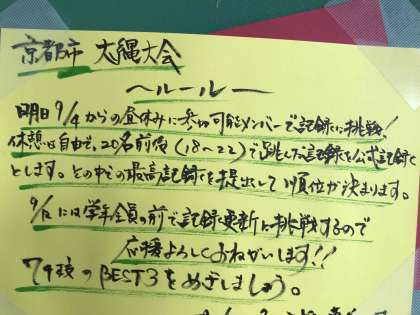 京都市 大縄大会
〜ルール〜
明日9/4からの昼休みに参加可能メンバーで記録に挑戦!
休憩は自由で、20名前後(18〜22)で跳んだ記録を公式記録
とします。その中での最高記録を提出して順位が決まります。
9/12には学年全員の前で記録更新に挑戦するので
応援よろしくおねがいします!!
74校のBEST3をめざしましょう。